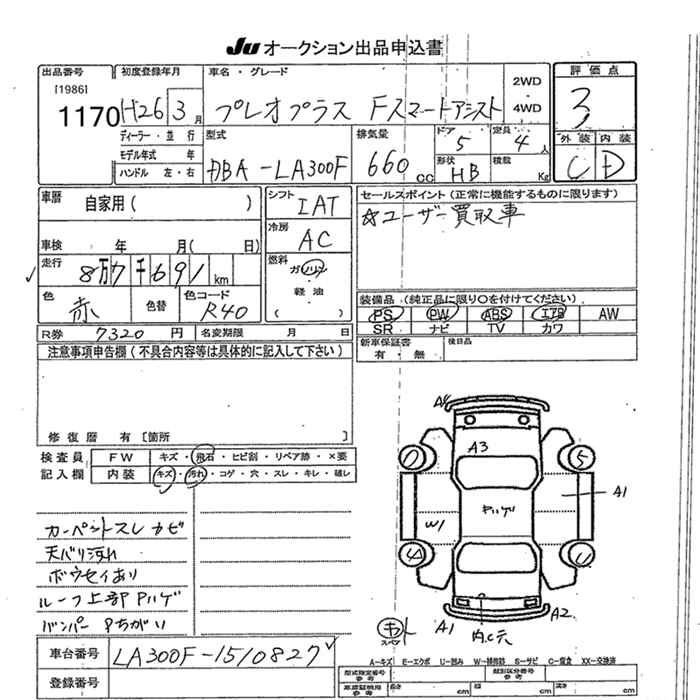 JU オークション出品申込書
出品番号 初度登録年月 車名・グレード 評価点
[1986]
1170 H26 3月 プレオプラス Fスマートアシスト 2WD 4WD 3
ディーラー・並行 型式 排気量 ドア 定員 外装 内装
モデル年式 年 DBA-LA300F 660cc 5 4人 C D
ハンドル 左・右 形状 HB 積載 Kg
車歴 自家用( ) シフト IAT セールスポイント(正常に機能するものに限ります)
☆ユーザー買取車
車検 年 月( 日) 冷房 AC
走行 8万7千691km 燃料 ガソリン
軽油
( )
色 赤 色替 色コード R40
装備品(純正品に限り○を付けてください)
PS PW ABS エアB AW
SR ナビ TV カワ
R券 7320円 名変期限 月 日
新車保証書 有・無 後日品
注意事項申告欄(不具合内容等は具体的に記入して下さい)
修復歴 有〔箇所 〕
検査員 FW キズ・飛石・ヒビ割・リペア跡・×要
記入欄 内装 キズ・汚れ・コゲ・穴・スレ・キレ・破レ
カーペットスレ カビ
天バリ汚れ
ボウセイあり
ルーフ上部Pハゲ
バンパーPちがい
A3
A1
W1
Pハゲ
A1
A2
車台番号 LA300F-1510827
登録番号
A-キズ E-エクボ U-凹み W-補修跡 S-サビ C-腐食 XX-交換済
型式指定番号 参考 類別区分番号 参考
長さ cm 幅 cm 高さ cm